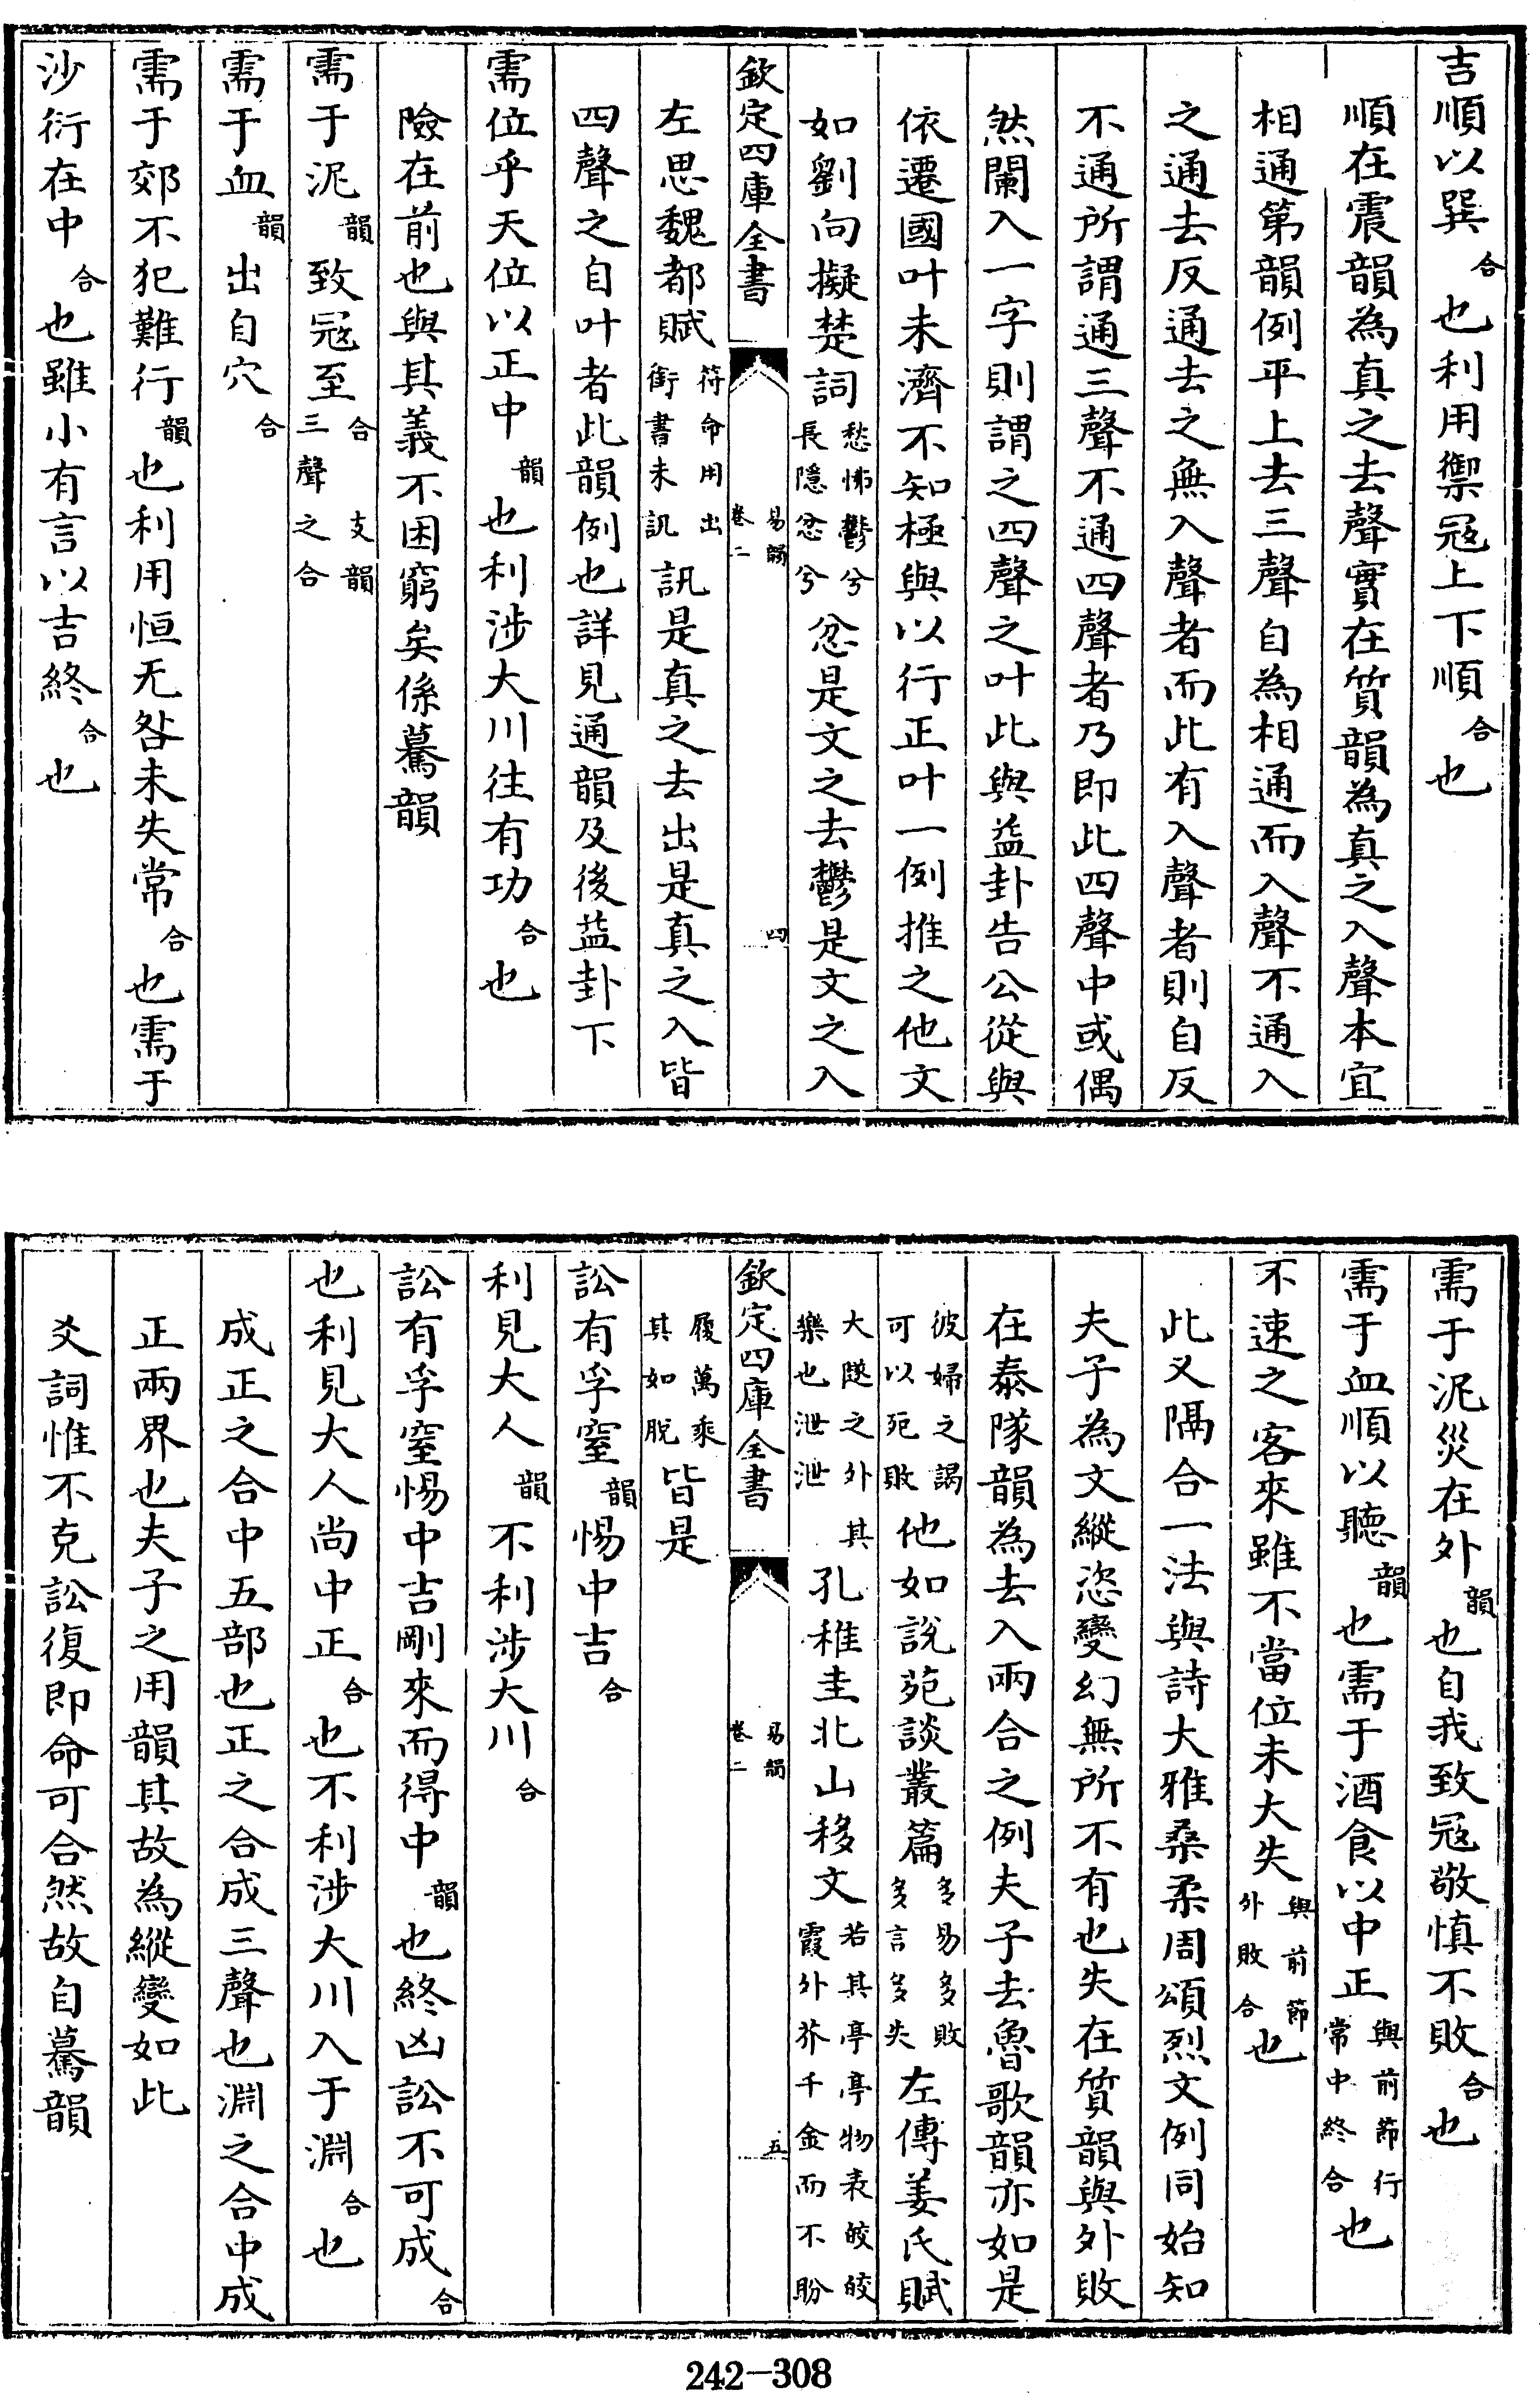 吉順以巽合也利用禦冦上下順合也
順在震韻為真之去聲實在質韻為真之入聲本宜
相通第韻例平上去三聲自為相通而入聲不通入
之通去反通去之無入聲者而此有入聲者則自反
不通所謂通三聲不通四聲者乃即此四聲中或偶
然闌入一字則謂之四聲之叶此與益卦告公從與
依遷國叶未濟不知極與以行正叶一例推之他文
如劉向擬楚詞愁怫鬱兮長隱忿兮忿是文之去鬱是文之入
欽定四庫全書 易韻卷二 四
左思魏都賦符命用出衒書未訊訊是真之去出是真之入皆
四聲之自叶者此韻例也詳見通韻及後益卦下
需位乎天位以正中韻也利涉大川往有功合也
險在前也與其義不困窮矣係驀韻
需于泥韻致冦至合支韻三聲之合
需于血韻出自穴合
需于郊不犯難行韻也利用恒无咎未失常合也需于
沙衍在中合也雖小有言以吉終合也
需于泥災在外韻也自我致冦敬慎不敗合也
需于血順以聽韻也需于酒食以中正與前節行常中終合也
不速之客來雖不當位未大失與前節外敗合也
此又隔合一法與詩大雅桑柔周頌烈文例同始知
夫子為文縱恣變幻無所不有也失在質韻與外敗
在泰隊韻為去入兩合之例夫子去魯歌韻亦如是
彼婦之謁可以死敗他如說苑談叢篇多易多敗多言多失左傳姜氏賦
大隧之外其樂也泄泄孔稚圭北山移文若其亭亭物表皎皎霞外芥千金而不盼
欽定四庫全書 易韻卷二 五
履萬乘其如脫皆是
訟有孚窒韻惕中吉合
利見大人韻不利涉大川合
訟有孚窒惕中吉剛來而得中韻也終凶訟不可成合
也利見大人尚中正合也不利涉大川入于淵合也
成正之合中五部也正之合成三聲也淵之合中成
正兩界也夫子之用韻其故為縱變如此
爻詞惟不克訟復即命可合然故自驀韻
242-308